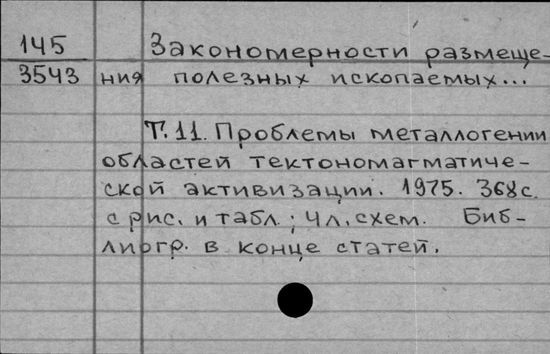 145
3543
Закономерности размеще-
ния полезных ископаемых...
Т.11. Проблемы металлогении
областей тектономагматиче-
ской активизации. 1975. 368с.
с рис. и табл.; 4 л. схем. Биб-
лиогр. в конце статей.